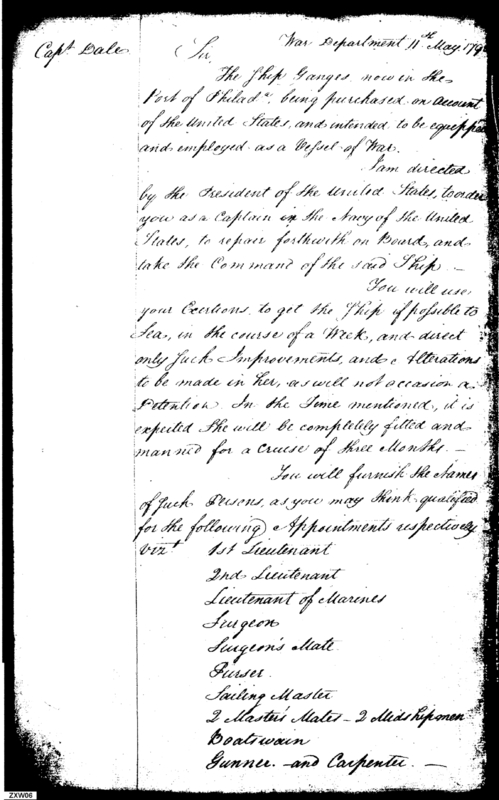 War Department 11th May 179
Capt Dale
Sir,
The Ship Ganges, now in the
Port of Philada, being purchased on account
of the United States, and intended to be equipped
and employed as a Vessel of War.
I am directed
by the President of the United States, to order
you as a Captain in the Navy of the United
States, to repair forthwith on Board, and
take the Command of the said Ship. —
You will use
your Exertions, to get the Ship if possible to
Sea, in the course of a Week, and direct
only such Improvements, and Alterations
to be made in her, as will not occasion a
Detention. In the Time mentioned, it is
expected She will be completely fitted and
manned for a Cruise of three Months. —
You will furnish the Names
of such Persons, as you may think qualified
for the following Appointments respectively
vizt
1st Lieutenant
2nd Lieutenant
Lieutenant of Marines
Surgeon
Surgeon's Mate
Purser
Sailing Master
2 Master's Mates - 2 Midshipmen
Boatswain
Gunner - and Carpenter. —
ZXW06